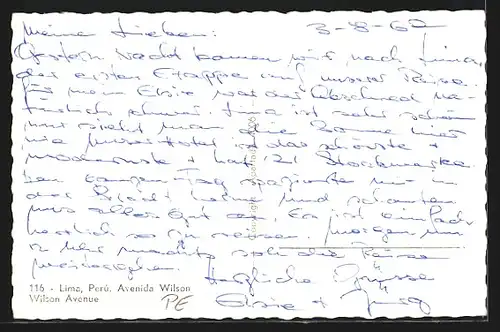 Meine Lieben: 3-8-60
Gestern Nacht kamen wir nach Lima,
der ersten Etappe auf unserer Reise.
Für meine Elsie war der Abschied na-
türlich schwer. Lima ist sehr schön
nur sieht man die Sonne hier
nie. Unser Hotel ist das schönste +
modernste + hat 21 Stockwerke
Den ganzen Tag spazierten wir in
der Stadt herum und schauten
uns alles gut an. Es ist einfach
herrlich so zu reisen. Morgen um
Uhr soll die Reise
weitergehen. Herzliche Grüsse
Elsie +
116 - Lima, Perú. Avenida Wilson
Wilson Avenue
PE